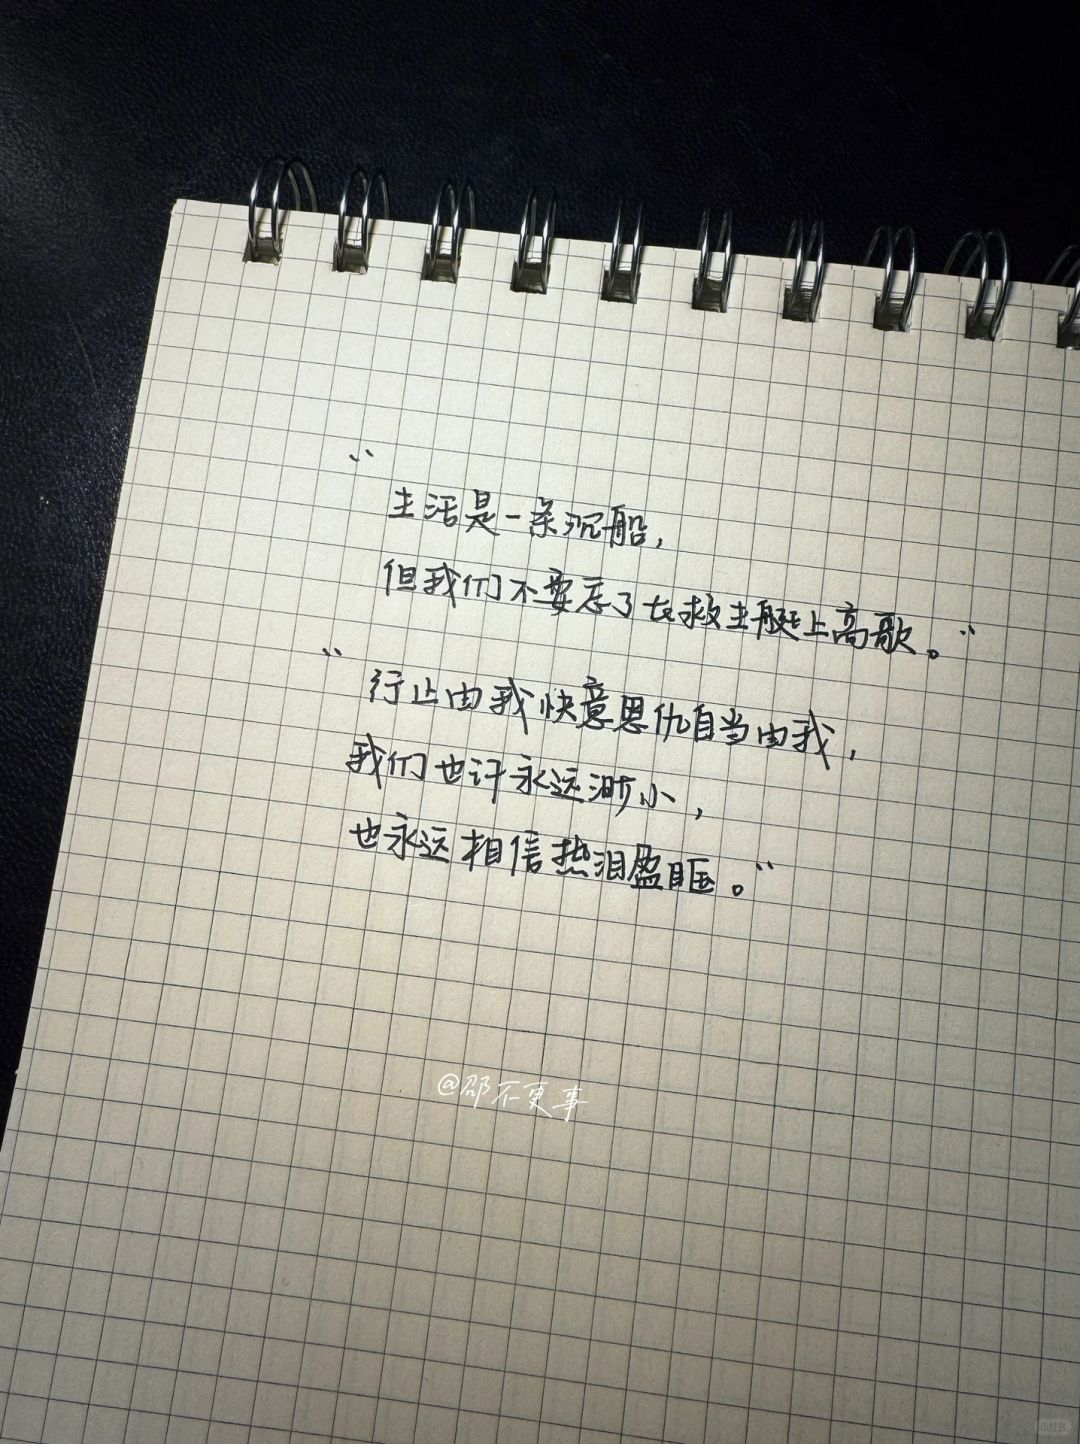 “生活是一条沉船，
但我们不要忘了在救生艇上高歌。”
“行止由我快意恩仇自当由我，
我们也许永远渺小，
也永远相信热泪盈眶。”
@邵不更事